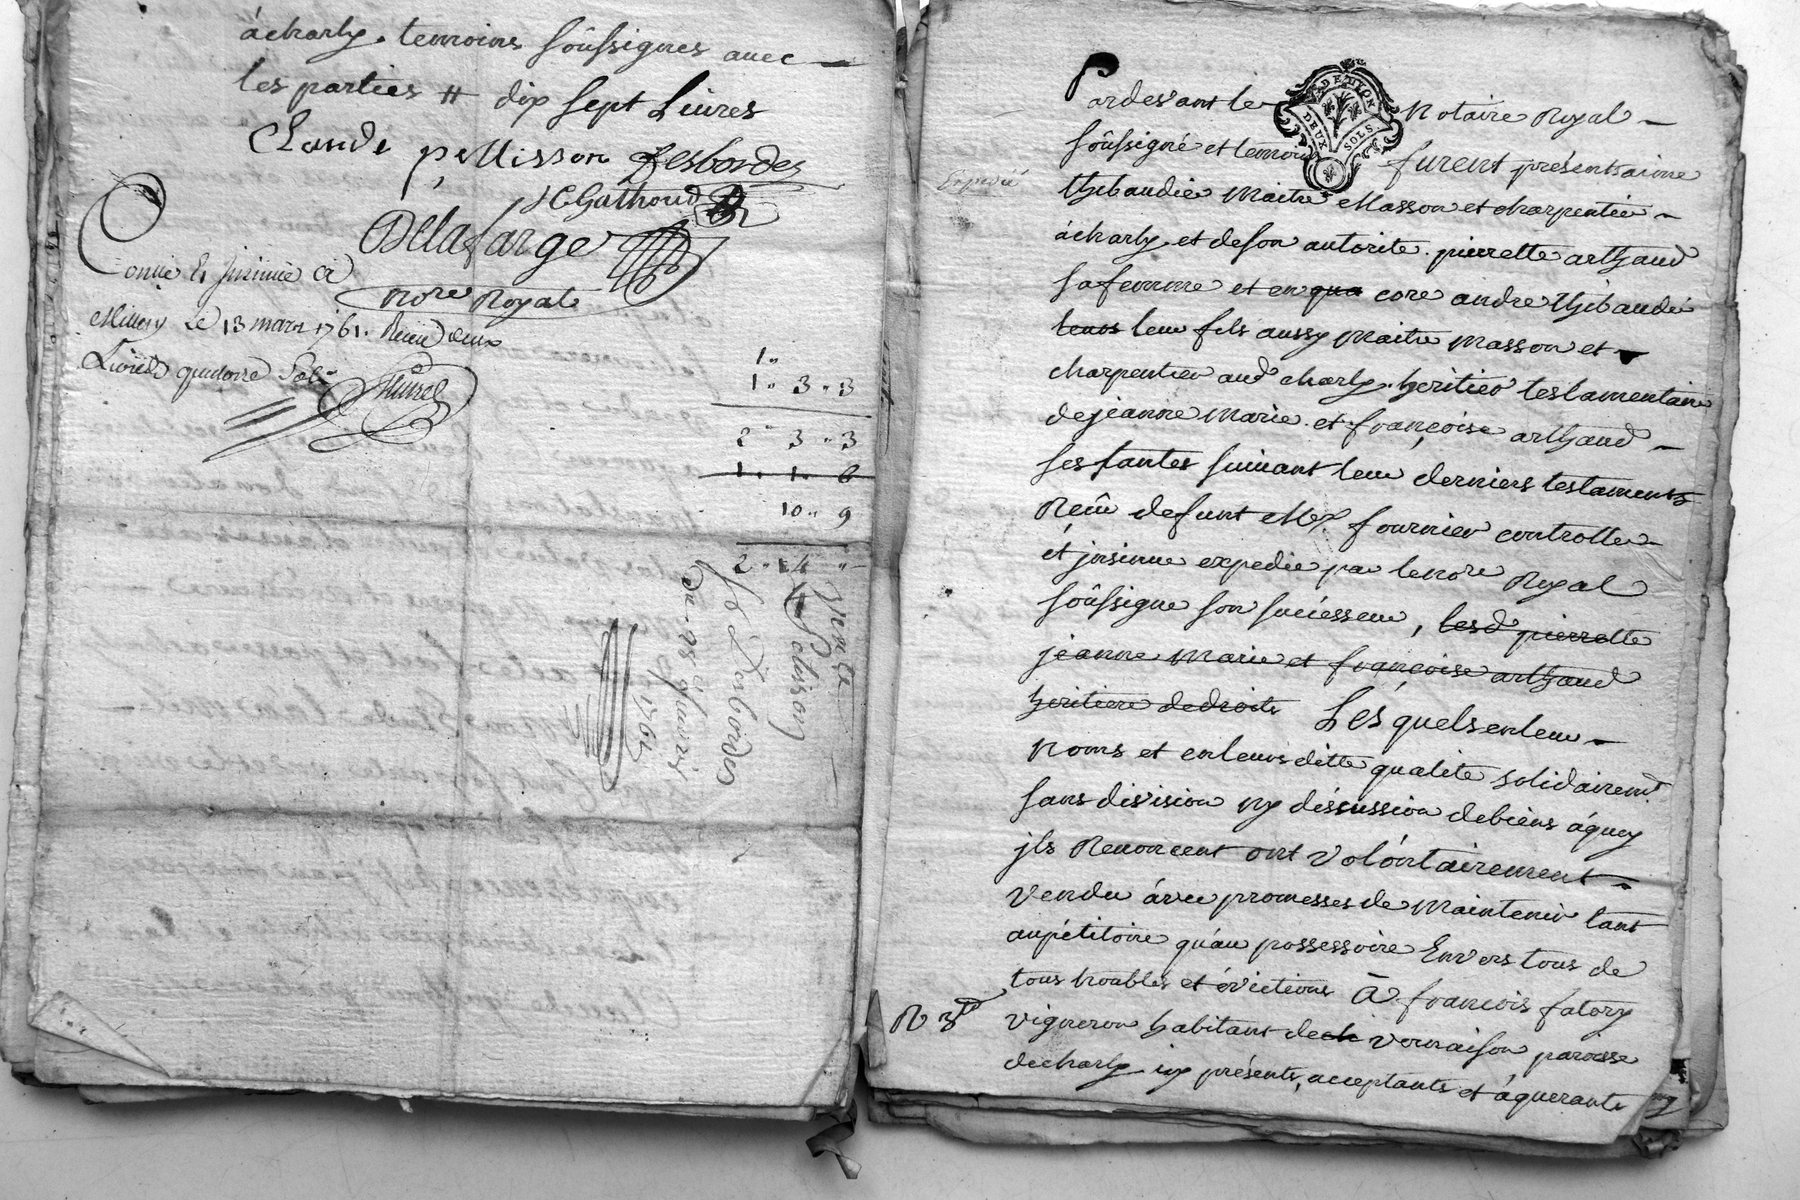 à charly. temoins soussignes avec
les parties # dix sept Livres
Claude pellisson Desbordes
JC Gathoud
Delafarge
nore Royal
Conle & Insinué à
Millery Le 13 mars 1761. Recu deux
Livres quatorze Sols
1..
1.. 3.. 3
2.. 3.. 3
1.. 1.. 6
10.. 9
2.. 14 ..
Vente
Pelisson
Desbordes
1761
Pardevant le Notaire Royal
GEN DE LYON
DEUX SOLS
soussigné et temoins furent présents aimé
Expedié
thibaudié Maitre Masson et charpentié
à charly et de son autorité. pierrette arthaud
sa femme et en qua core andré thibaudié
leurs leur fils aussy Maitre masson et
charpentier aud charly. heritier testamentaire
de jeanne marie. et. françoise arthaud
ses tantes suivant leur derniers testaments
Reçu defunt Me fournier controllé
et insinue expedié par le nore Royal
soussigné son successeur, lesd pierrette
jeanne marie et françoise arthaud
heritiere de droits Lésquels en leur
noms et en leurs ditte qualité solidairemt
sans division ny discussion de biens áquoy
jls Renoncent ont volontairement
vendu ávec promesses de Maintenir tant
aupétitoire qu'au possessoire Envers tous de
tous troubles et évictions À françois fatory
R 3d
vigneron habitant de ch vernaison paroisse
de charly icy présents, acceptants et áquerants